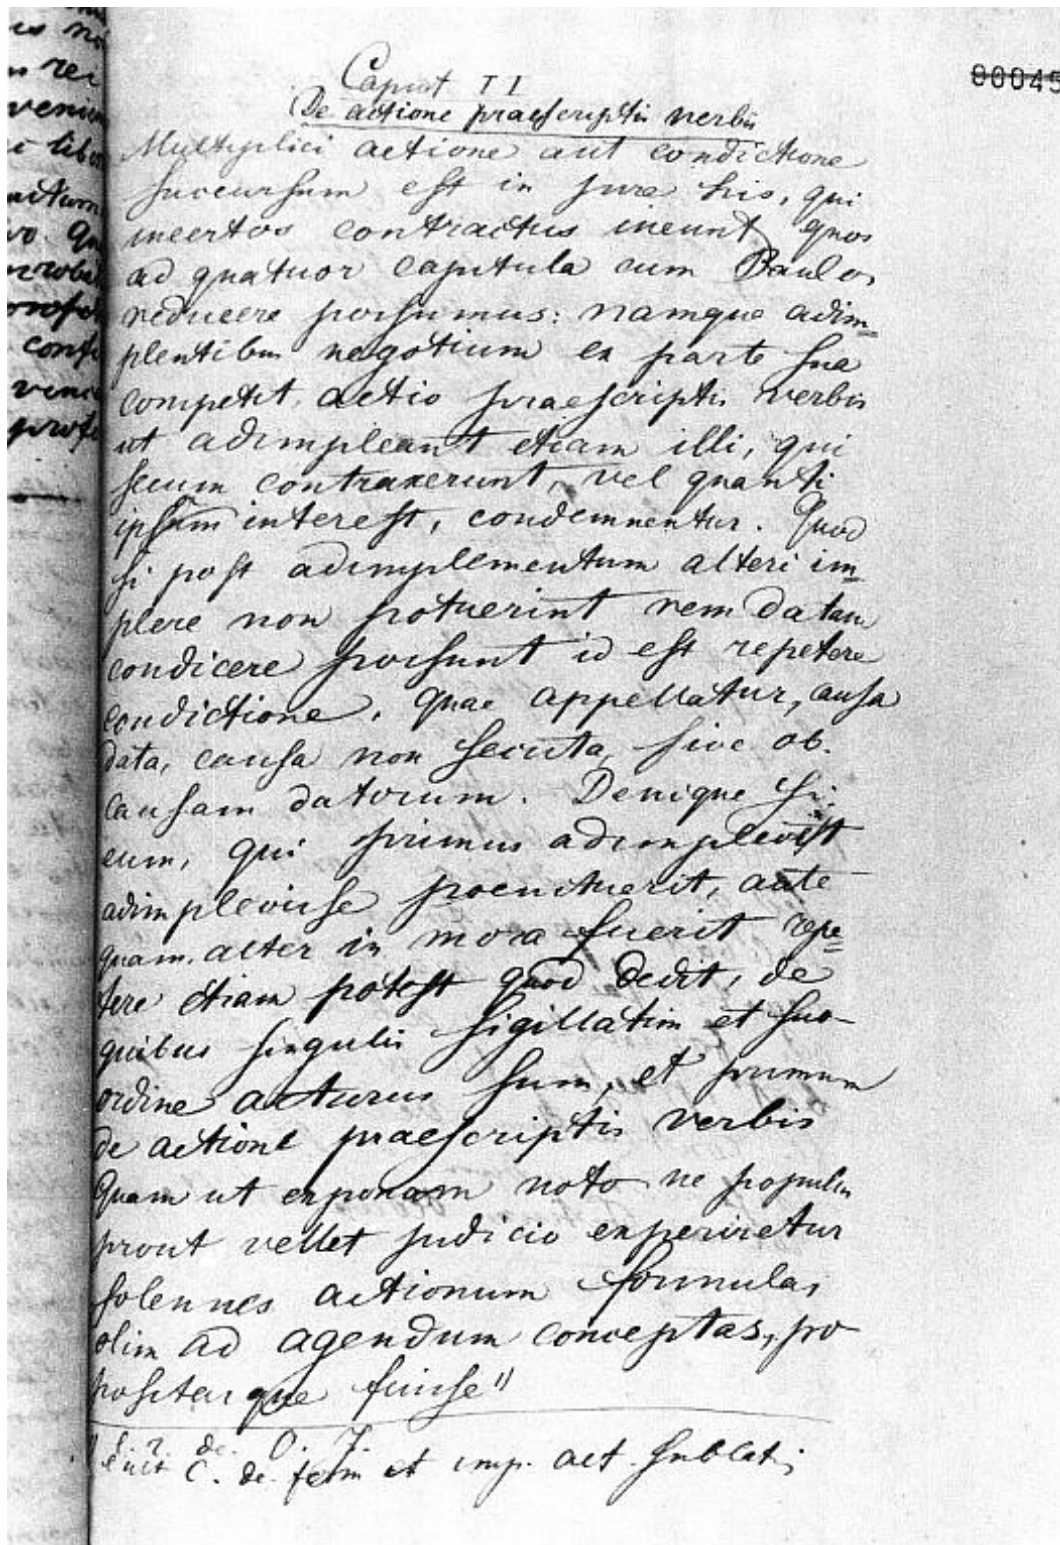 00045
Caput II
De actione praescriptis verbis
Multiplici actione aut condictione
succursum est in jure his, qui
incertos contractus ineunt, quos
ad quatuor capitula cum Paulo
reducere possumus: namque adim=
plentibus negotium ex parte sua
competit actio praescriptis verbis
ut adimpleant etiam illi, qui
secum contraxerunt, vel quanti
ipsum interest, condemnentur. Quod
si post adimplementum alteri im=
plere non potuerint rem datam
condicere possunt id est repetere
condictione, quae appellatur, causa
data, causa non secuta, sive ob.
causam datorum. Denique si
eum, qui primus adimplevit
adimplevisse poenituerit, ante
quam alter in mora fuerit repe=
tere etiam potest quod dedit, de
quibus singulis sigillatim et suo
ordine acturus sum, et primum
de actione praescriptis verbis
Quam ut exponam noto ne populus
prout vellet judicio experiretur
solennes actionum formulas
olim ad agendum conceptas, pro
positasque fuisse 1)
de O. J.
C. de form et imp. act. sublatis